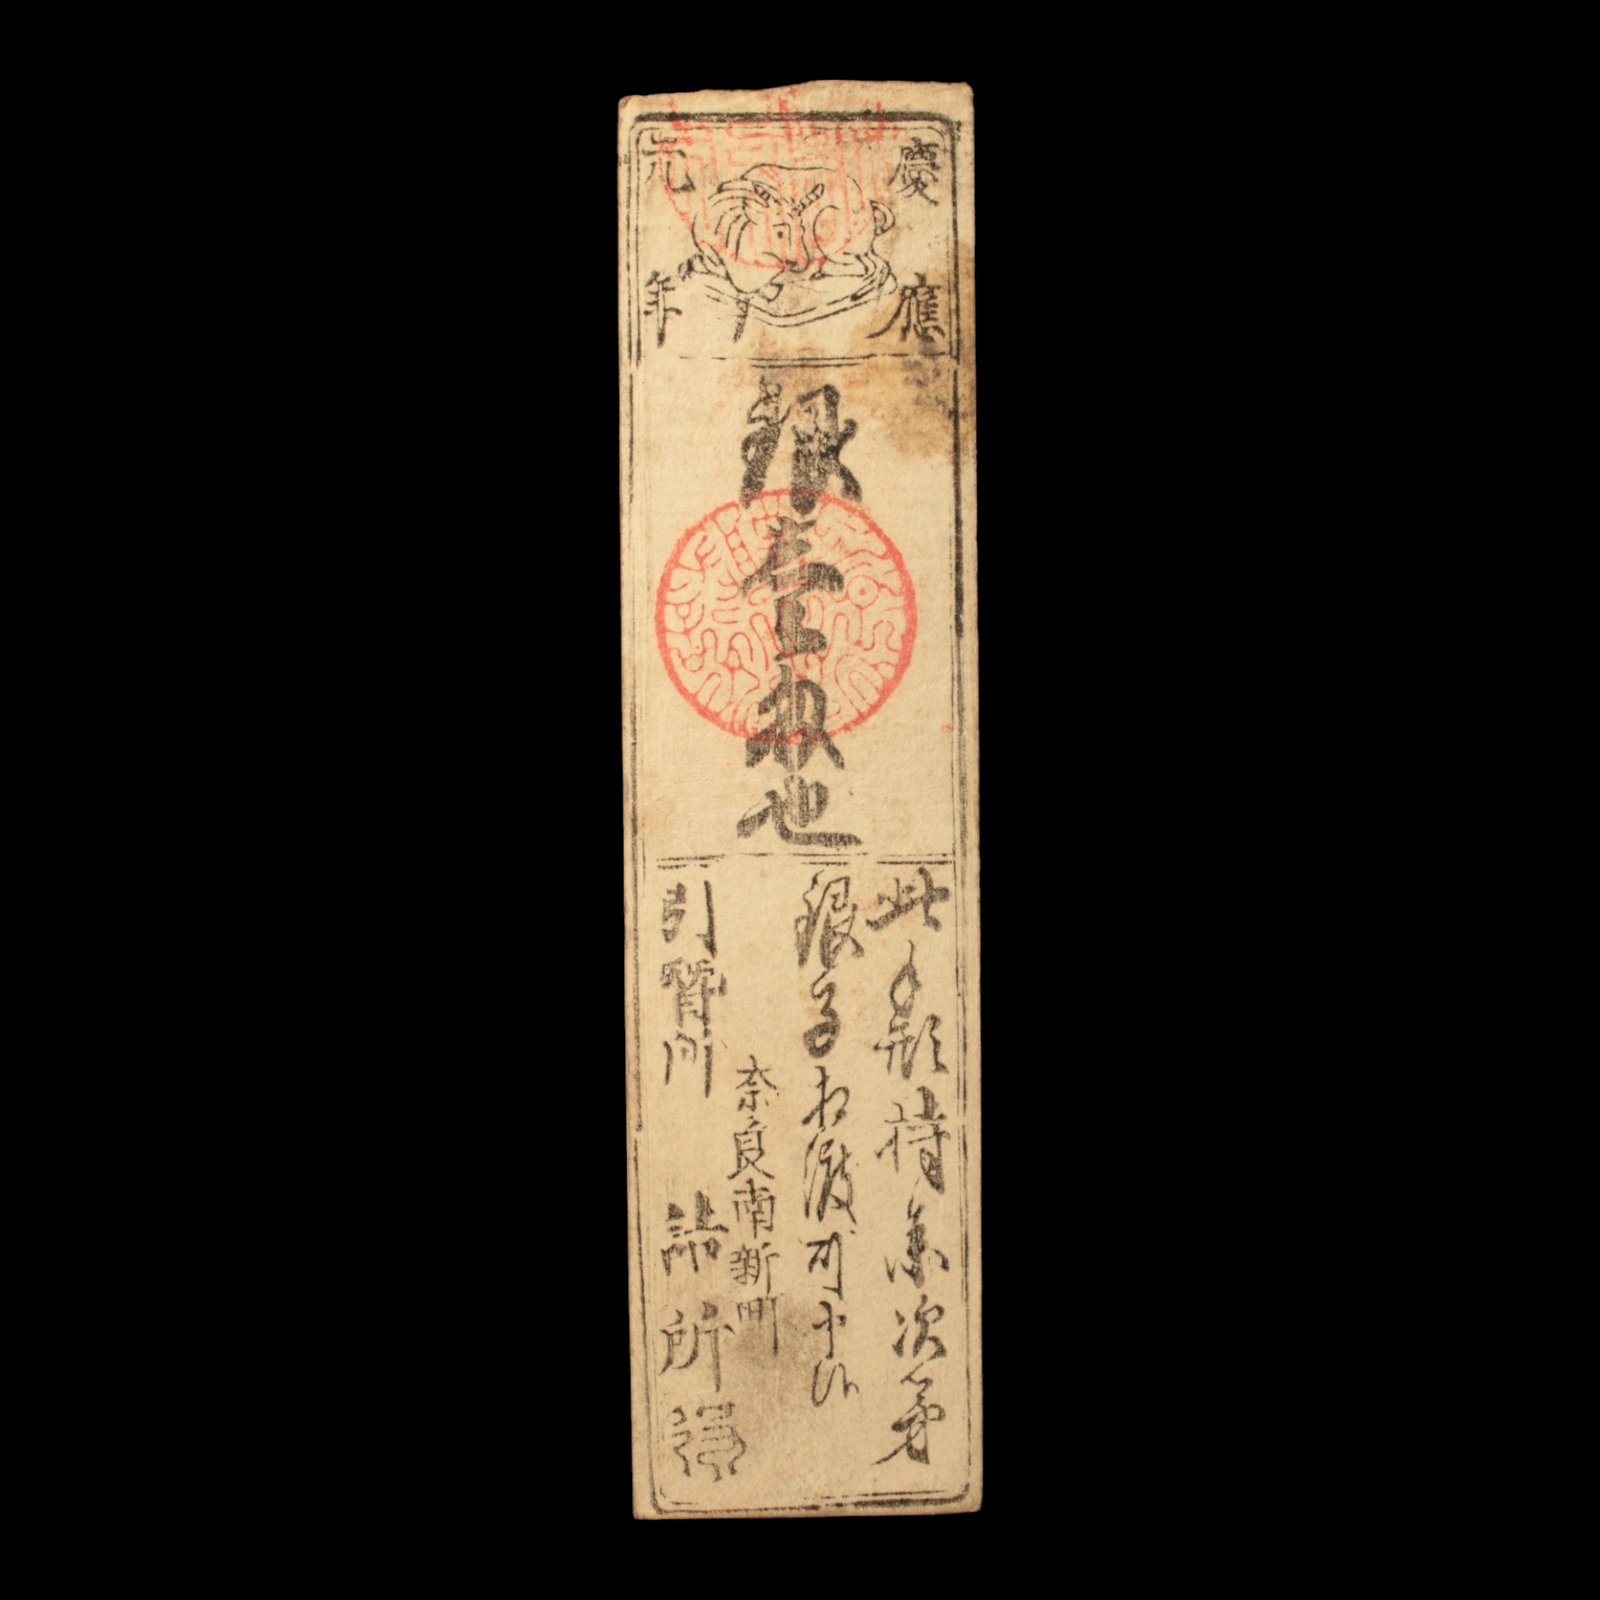 慶應
元年
銀壱匁也
此手形持参次第
銀子相渡可申候
奈良南新町
引替所
詰所